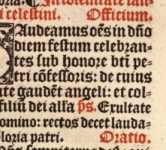 ti celestini. Officium.
Gaudeamus oēs in dño
diem festum celebran-
tes sub honore bti pe-
tri cōfessoris: de cuius
te gaudēt angeli: et col
filiū dei alfa ps. Exultate
domino: rectos decet lauda-
gloria patri. Oratio.